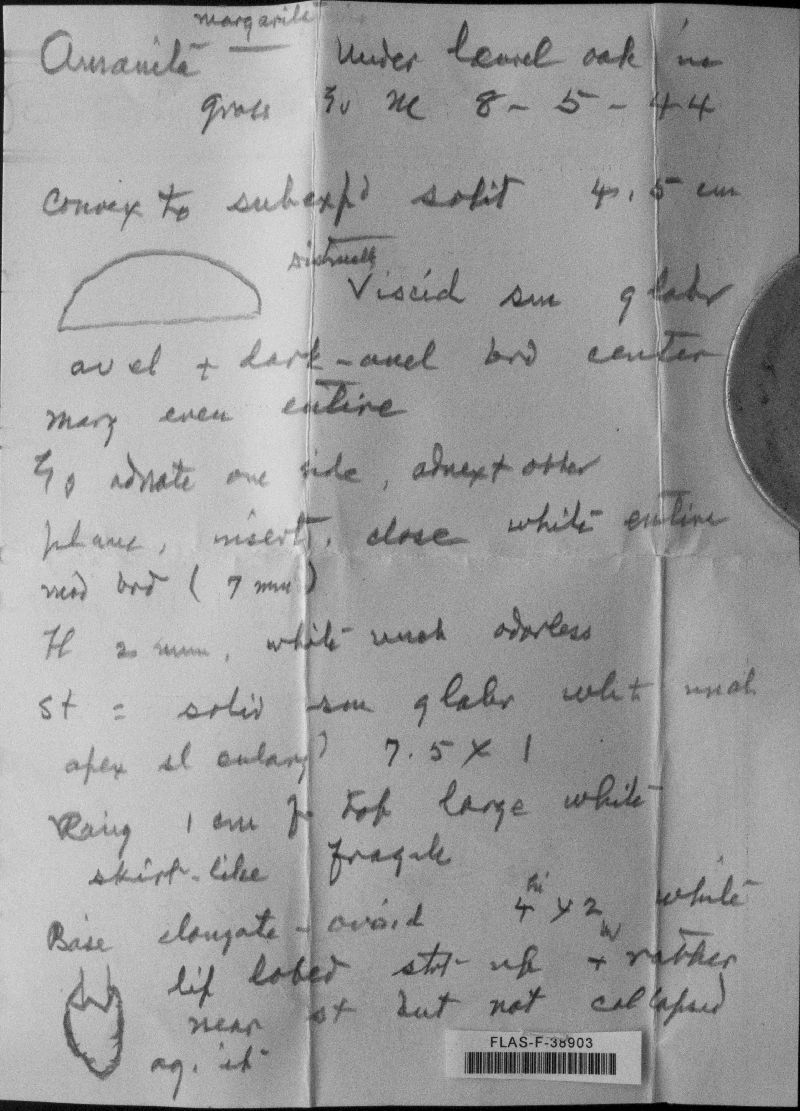 margarita
Amanita under laurel oak in
grass Gv NE 8-5-44
Convex to subexp'd solit 4.5 cm
distinctly
Viscid sm glabr
avel + dark-avel brd center
marg even entire
adnate one side, adnext other
plane, insert, close white entire
mod brd (7 mm)
Fl 2 mm, white unch odorless
St = solid sm glabr white unch
apex sl enlarg'd 7.5 X 1
Ring 1 cm f top large white
skirt-like fragile
Base elongate-ovoid 4 hi X 2 w white
lip lobed st up + rather
near st but not collapsed
ag. it
FLAS-F-38903